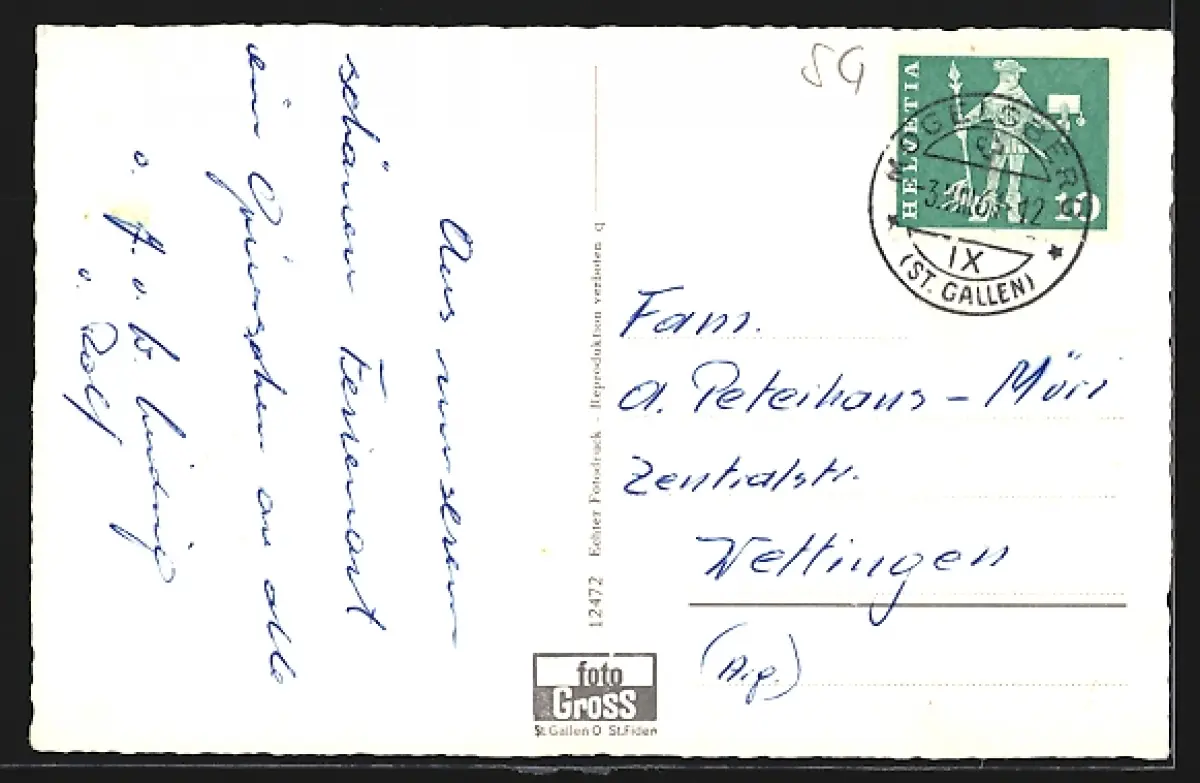 Aus unserem
schönen Ferienort
ein Grüsschen an alle
A. u. W.
u. Rolf
12472 Echter Fotodruck - Reproduktion verboten q
foto
Gross
St.Gallen O St.Fiden
SG
HELVETIA
10
MOGELSBERG
-12
IX
(ST. GALLEN)
Fam.
A. Peterhans - Müri
Zentralstr.
Wettingen